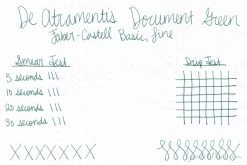 De Atramentis Document Green
Faber-Castell Basic, fine
Smear Test
Drip Test
5 seconds
10 seconds
20 seconds
30 seconds